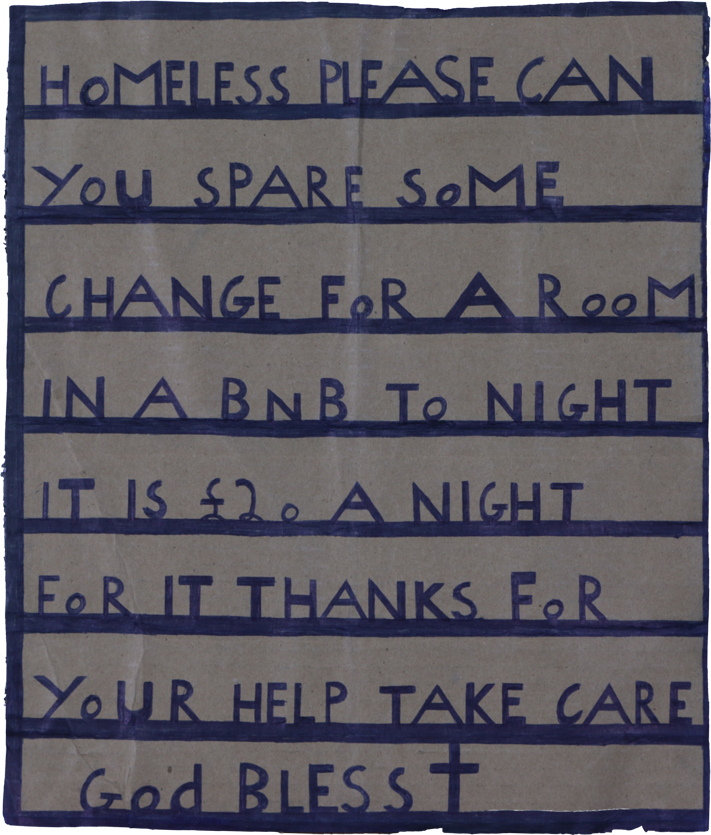 HoMELESS PLEASE CAN
YoU SPARE SoME
CHANGE FoR A RooM
IN A BNB To NIGHT
IT IS £20 A NIGHT
FoR IT THANKS FoR
YoUR HELP TAKE CARE
God BLESS ✝